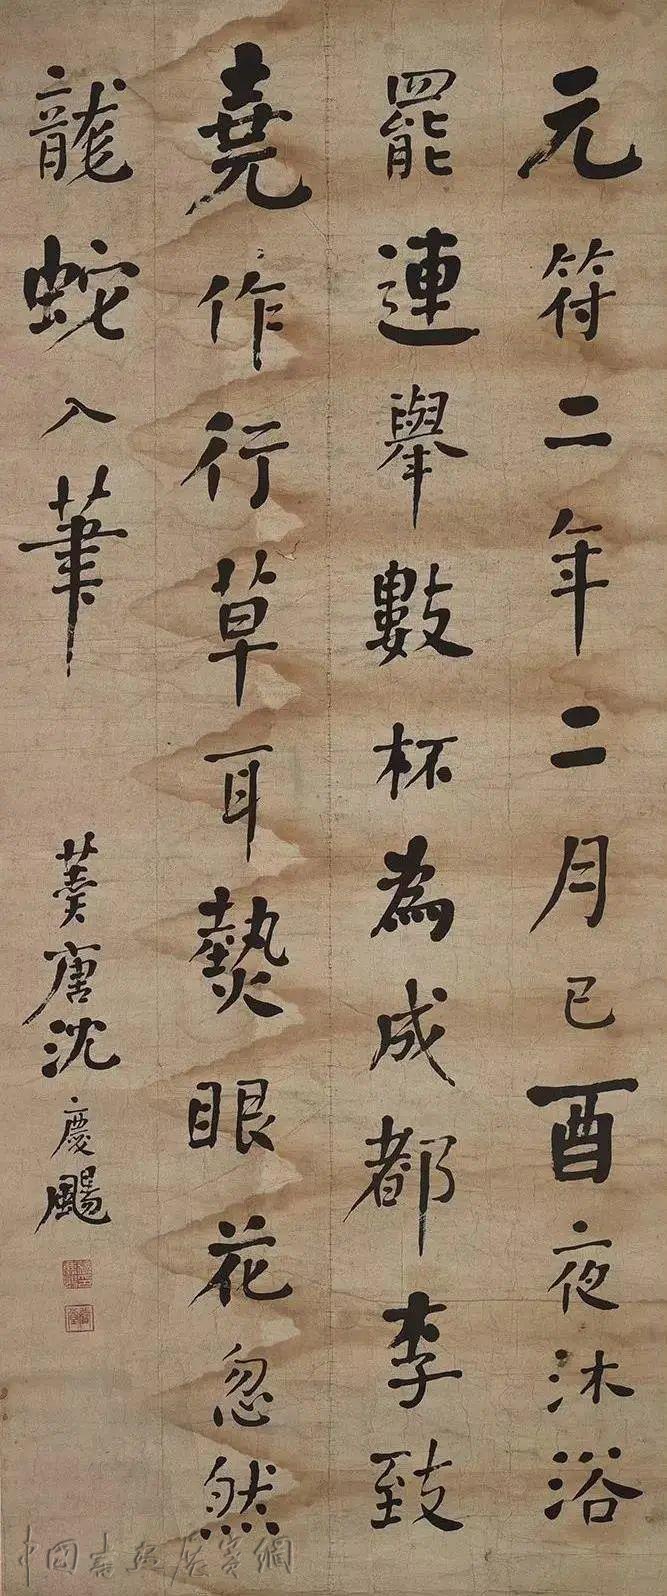 元符二年二月己酉夜沐浴
罷連舉數杯為成都李致
堯作行草耳熱眼花忽然
龍蛇入筆
唐沈慶颺